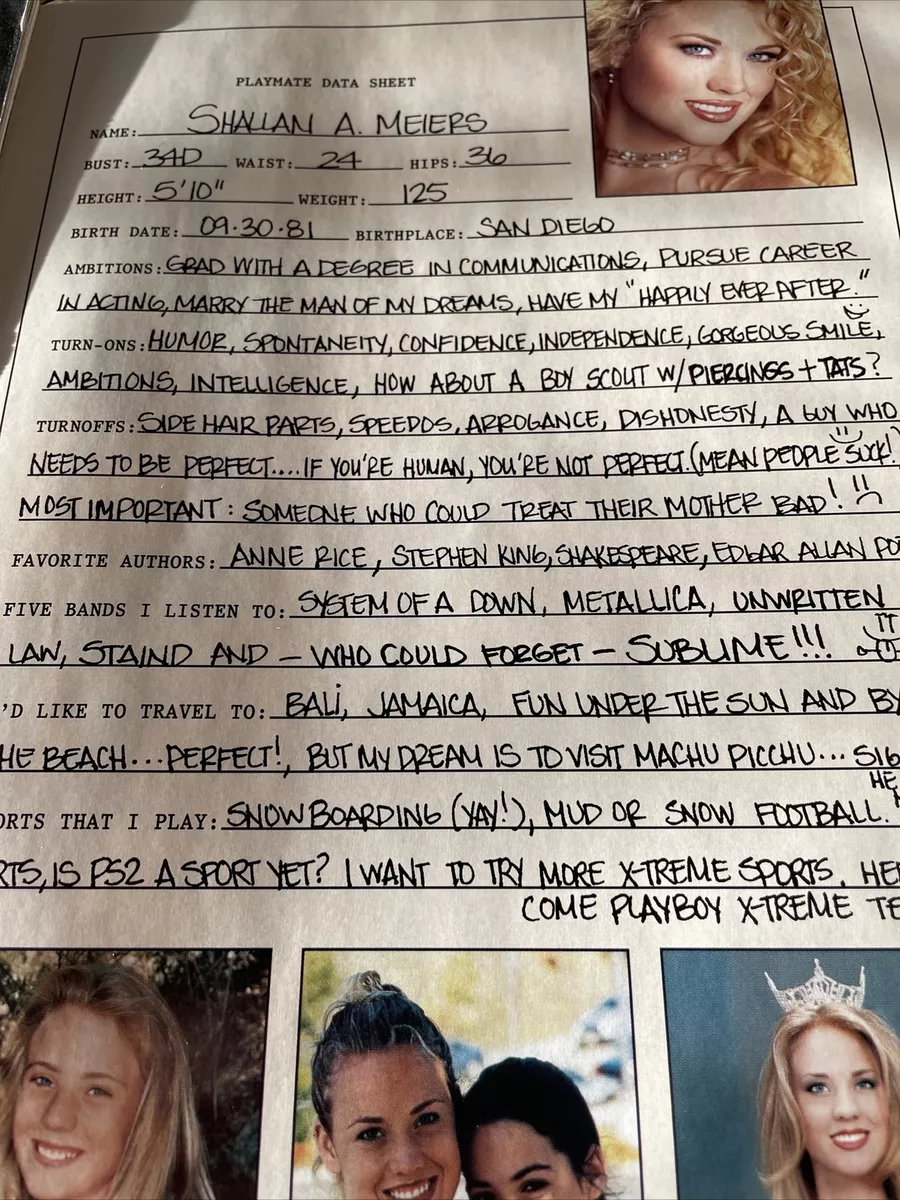 PLAYMATE DATA SHEET
NAME: SHALLAN A. MEIERS
BUST: 34D WAIST: 24 HIPS: 36
HEIGHT: 5'10" WEIGHT: 125
BIRTH DATE: 09·30·81 BIRTHPLACE: SAN DIEGO
AMBITIONS: GRAD WITH A DEGREE IN COMMUNICATIONS, PURSUE CAREER
IN ACTING, MARRY THE MAN OF MY DREAMS, HAVE MY "HAPPILY EVER AFTER."
TURN-ONS: HUMOR, SPONTANEITY, CONFIDENCE, INDEPENDENCE, GORGEOUS SMILE,
AMBITIONS, INTELLIGENCE, HOW ABOUT A BOY SCOUT W/PIERCINGS + TATS?
TURNOFFS: SIDE HAIR PARTS, SPEEDOS, ARROGANCE, DISHONESTY, A GUY WHO
NEEDS TO BE PERFECT.... IF YOU'RE HUMAN, YOU'RE NOT PERFECT. (MEAN PEOPLE SUCK!)
MOST IMPORTANT: SOMEONE WHO COULD TREAT THEIR MOTHER BAD!
FAVORITE AUTHORS: ANNE RICE, STEPHEN KING, SHAKESPEARE, EDGAR ALLAN PO
FIVE BANDS I LISTEN TO: SYSTEM OF A DOWN, METALLICA, UNWRITTEN
LAW, STAIND AND - WHO COULD FORGET - SUBLIME!!!
'D LIKE TO TRAVEL TO: BALI, JAMAICA, FUN UNDER THE SUN AND BY
HE BEACH... PERFECT!, BUT MY DREAM IS TO VISIT MACHU PICCHU... SIG
HE
ORTS THAT I PLAY: SNOWBOARDING (YAY!), MUD OR SNOW FOOTBALL.
RTS, IS PS2 A SPORT YET? I WANT TO TRY MORE X-TREME SPORTS. HER
COME PLAYBOY X-TREME TE